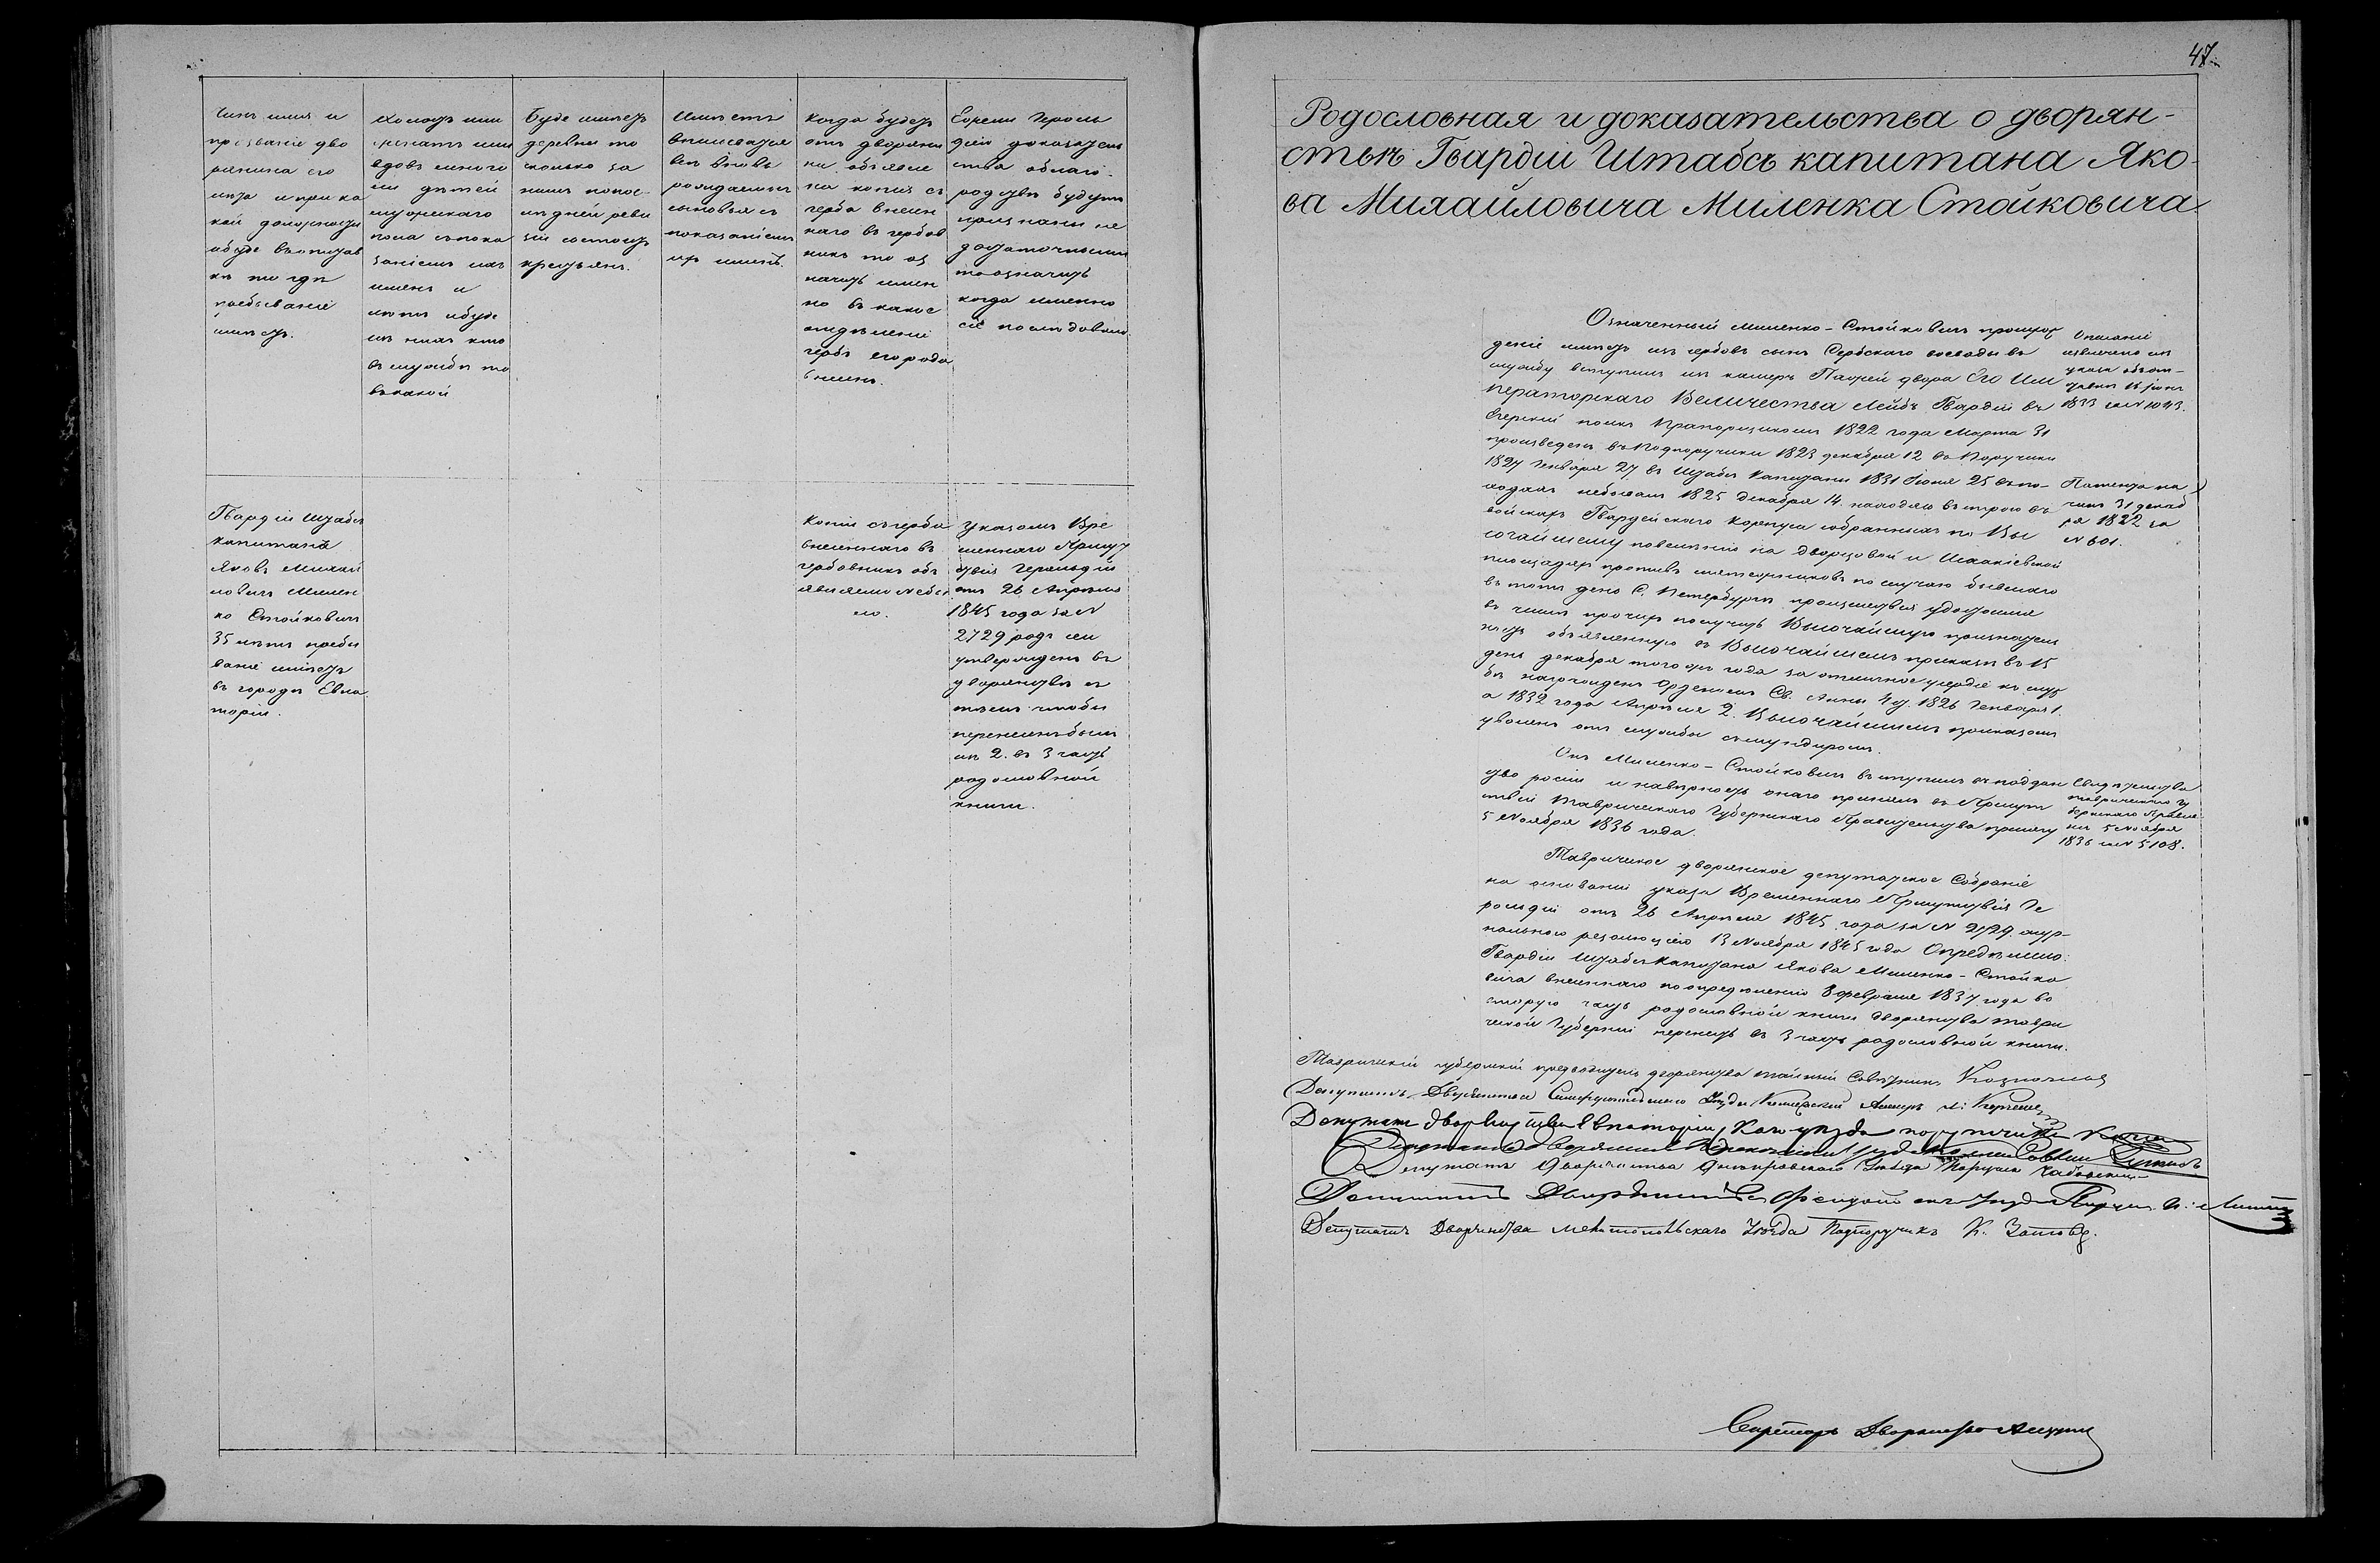 Чинъ имя и
прозваніе дво
рянина его
лѣта и при ка
кой должности
абуде въ отстав
кѣ то гдѣ
пребываніе
имѣетъ.
Холостъ или
женатъ или
вдовъ много
ли дѣтей
мужескаго
пола съ пока
заніемъ ихъ
именъ и
лѣтъ и буде
изъ нихъ кто
въ службѣ то
въ какой
Буде имѣетъ
деревни то
сколько за
нимъ по пос-
лѣдней реви
зіи состоитъ
крестьянъ.
Имѣетъ
вписывател
въ вновь
рождаемыхъ
сыновья съ
показаніемъ
ихъ именъ.
Когда будетъ
отъ дворяни
на объявле
на копія съ
герба внесен
наго въ гербов
никъ то оз
начить имен
но въ какое
отдѣленіе
гербъ его рода
внесенъ.
Ежели Героль
діей доказатель
ства о благо-
родствѣ будутъ
признаны не
достаточными
то означить
когда именно
сіе послѣдовало.
Гвардіи Штабсъ
капитана
Яковъ Михай
ловичъ Милен
ко Стойковичъ
35 лѣтъ пребы
ваніе имѣетъ
въ городѣ Евпа
торіи.
Копіи съ герба
внесеннаго въ
гербовникъ объ
являемо не бы
ло.
Указомъ Вре
меннаго Присут
ствія Герольдіи
отъ 26 Апрѣля
1845 года за N
2729 родъ сей
утвержденъ въ
дворянствѣ съ
тѣмъ чтобы
перенесенъ былъ
изъ 2. въ 3 часть
родословной
книги.
47
Родословная и доказательства о дворян-
ствѣ Гвардіи Штабсъ капитана Яко-
ва Михайловича Миленка Стойковича.
Означенный Миленко-Стойковичъ происхож
деніе имѣетъ изъ сербовъ сынъ Сербскаго воеводы въ
службу вступилъ изъ камеръ Пажей двора Его Им
ператорскаго Величества Лейбъ Гвардіи въ
Егерскій полкъ Прапорщикомъ 1822 года Марта 31
произведенъ въ Подпоручики 1823 декабря 12 въ Поручики
1827 Генваря 27 въ Штабсъ Капитаны 1831 Іюня 25 въ по-
ходахъ небывалъ 1825 Декабря 14 находясь въ строю въ
войскахъ Гвардейскаго Корпуса собранныхъ по Вы
сочайшему повелѣнію на Дворцовой и Исакіевской
площадяхъ противъ мятежниковъ по случаю бывшаго
въ тотъ день С. Петербургѣ происшествія удостоился
въ числѣ прочихъ получить Высочайшую признатель
ность объявленную въ Высочайшемъ приказѣ въ 15
день декабря того жъ года за отличное усердіе къ служ
бѣ награжденъ Орденомъ Св. Анны 4 ст. 1826 Генваря 1.
а 1832 года Апрѣля 2. Высочайшимъ приказомъ
уволенъ отъ службы съ мундиромъ.
Описаніе
извлечено изъ
указа объ от-
ставкѣ 15 Іюня
1833 за N 1043.
Патента на
чинъ 31 декаб
ря 1822 за
N 601.
Онъ Миленко-Стойковичъ вступилъ въ поддан
ство росіи и навѣрность онаго принялъ въ Присут
ствіи Таврическаго Губернскаго Правительства присягу
5 Ноября 1836 года.
Свидѣтельства
таврическаго Гу
бернскаго Правле
нія 5 Ноября
1836 за N 5108.
Таврическое дворянское депутатское Собраніе
на основаніи указа Временнаго Присутствія Ге
рольдіи отъ 26 Апрѣля 1845 года за N 2729. жур-
нальною резолюціею 13 Ноября 1845 года Опредѣлило:
Гвардіи Штабсъ Капитана Якова Миленко-Стойко
вича внесеннаго по опредѣленію 8 февраля 1837 года во
вторую часть родословной книги дворянства таври
ческой Губерніи перенесть въ 3 часть родословной книги.
Таврическій губернскій предводитель дворянства тайный Совѣтникъ Казначеевъ
Депутатъ Дворянства Симферопольскаго Уѣзда
Депутатъ дворянства Евпаторійскаго уѣзда поручикъ
Депутатъ дворянства
Депутатъ Дворянства Днѣпровскаго Уѣзда Поручикъ
Депутатъ Дворянства Феодосійскаго Уѣзда
Депутатъ Дворянства Мелитопольскаго Уѣзда Подпоручикъ К.
Секретарь Дворянства